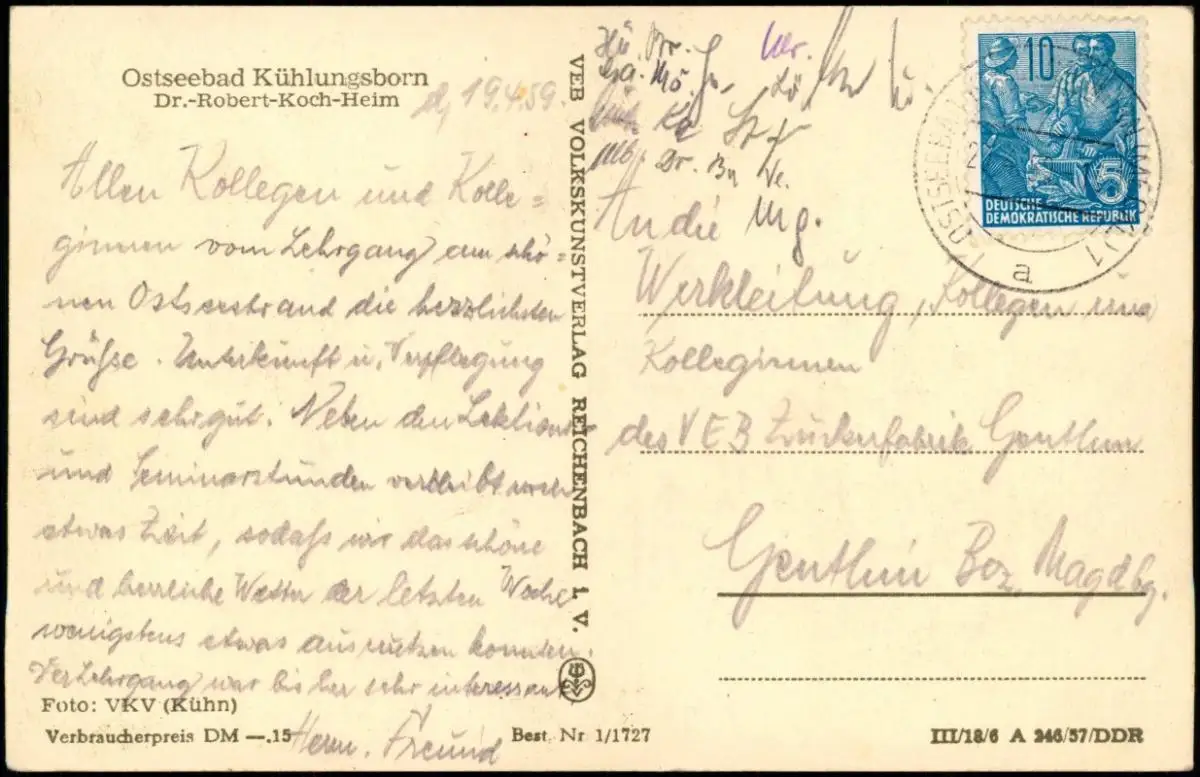 Ostseebad Kühlungsborn
Dr.-Robert-Koch-Heim
d. 19.4.59.
Allen Kollegen und Kolle=
ginnen vom Lehrgang am schö=
nen Ostseestrand die herzlichsten
Grüße. Unterkunft u. Verpflegung
sind sehr gut. Neben den Lektions-
und Seminarstunden verbleibt noch
etwas Zeit, sodaß wir das schöne
und herrliche Wetter der letzten Woche
wenigstens etwas ausnutzen konnten.
Der Lehrgang war bisher sehr interessant
Herm. Freund
Foto: VKV (Kühn)
Verbraucherpreis DM —.15
Best. Nr 1/1727
VEB VOLKSKUNSTVERLAG REICHENBACH i. V.
Hü. Br.
Mö.
Lö
Ka
Dr. Bu Ve.
10
5
DEUTSCHE
DEMOKRATISCHE REPUBLIK
OSTSEEBAD
a
An die Mg.
Werkleitung, Kollegen und
Kolleginnen
des VEB Zuckerfabrik Genthin
Genthin Bez. Magdbg.
III/18/6 A 246/57/DDR